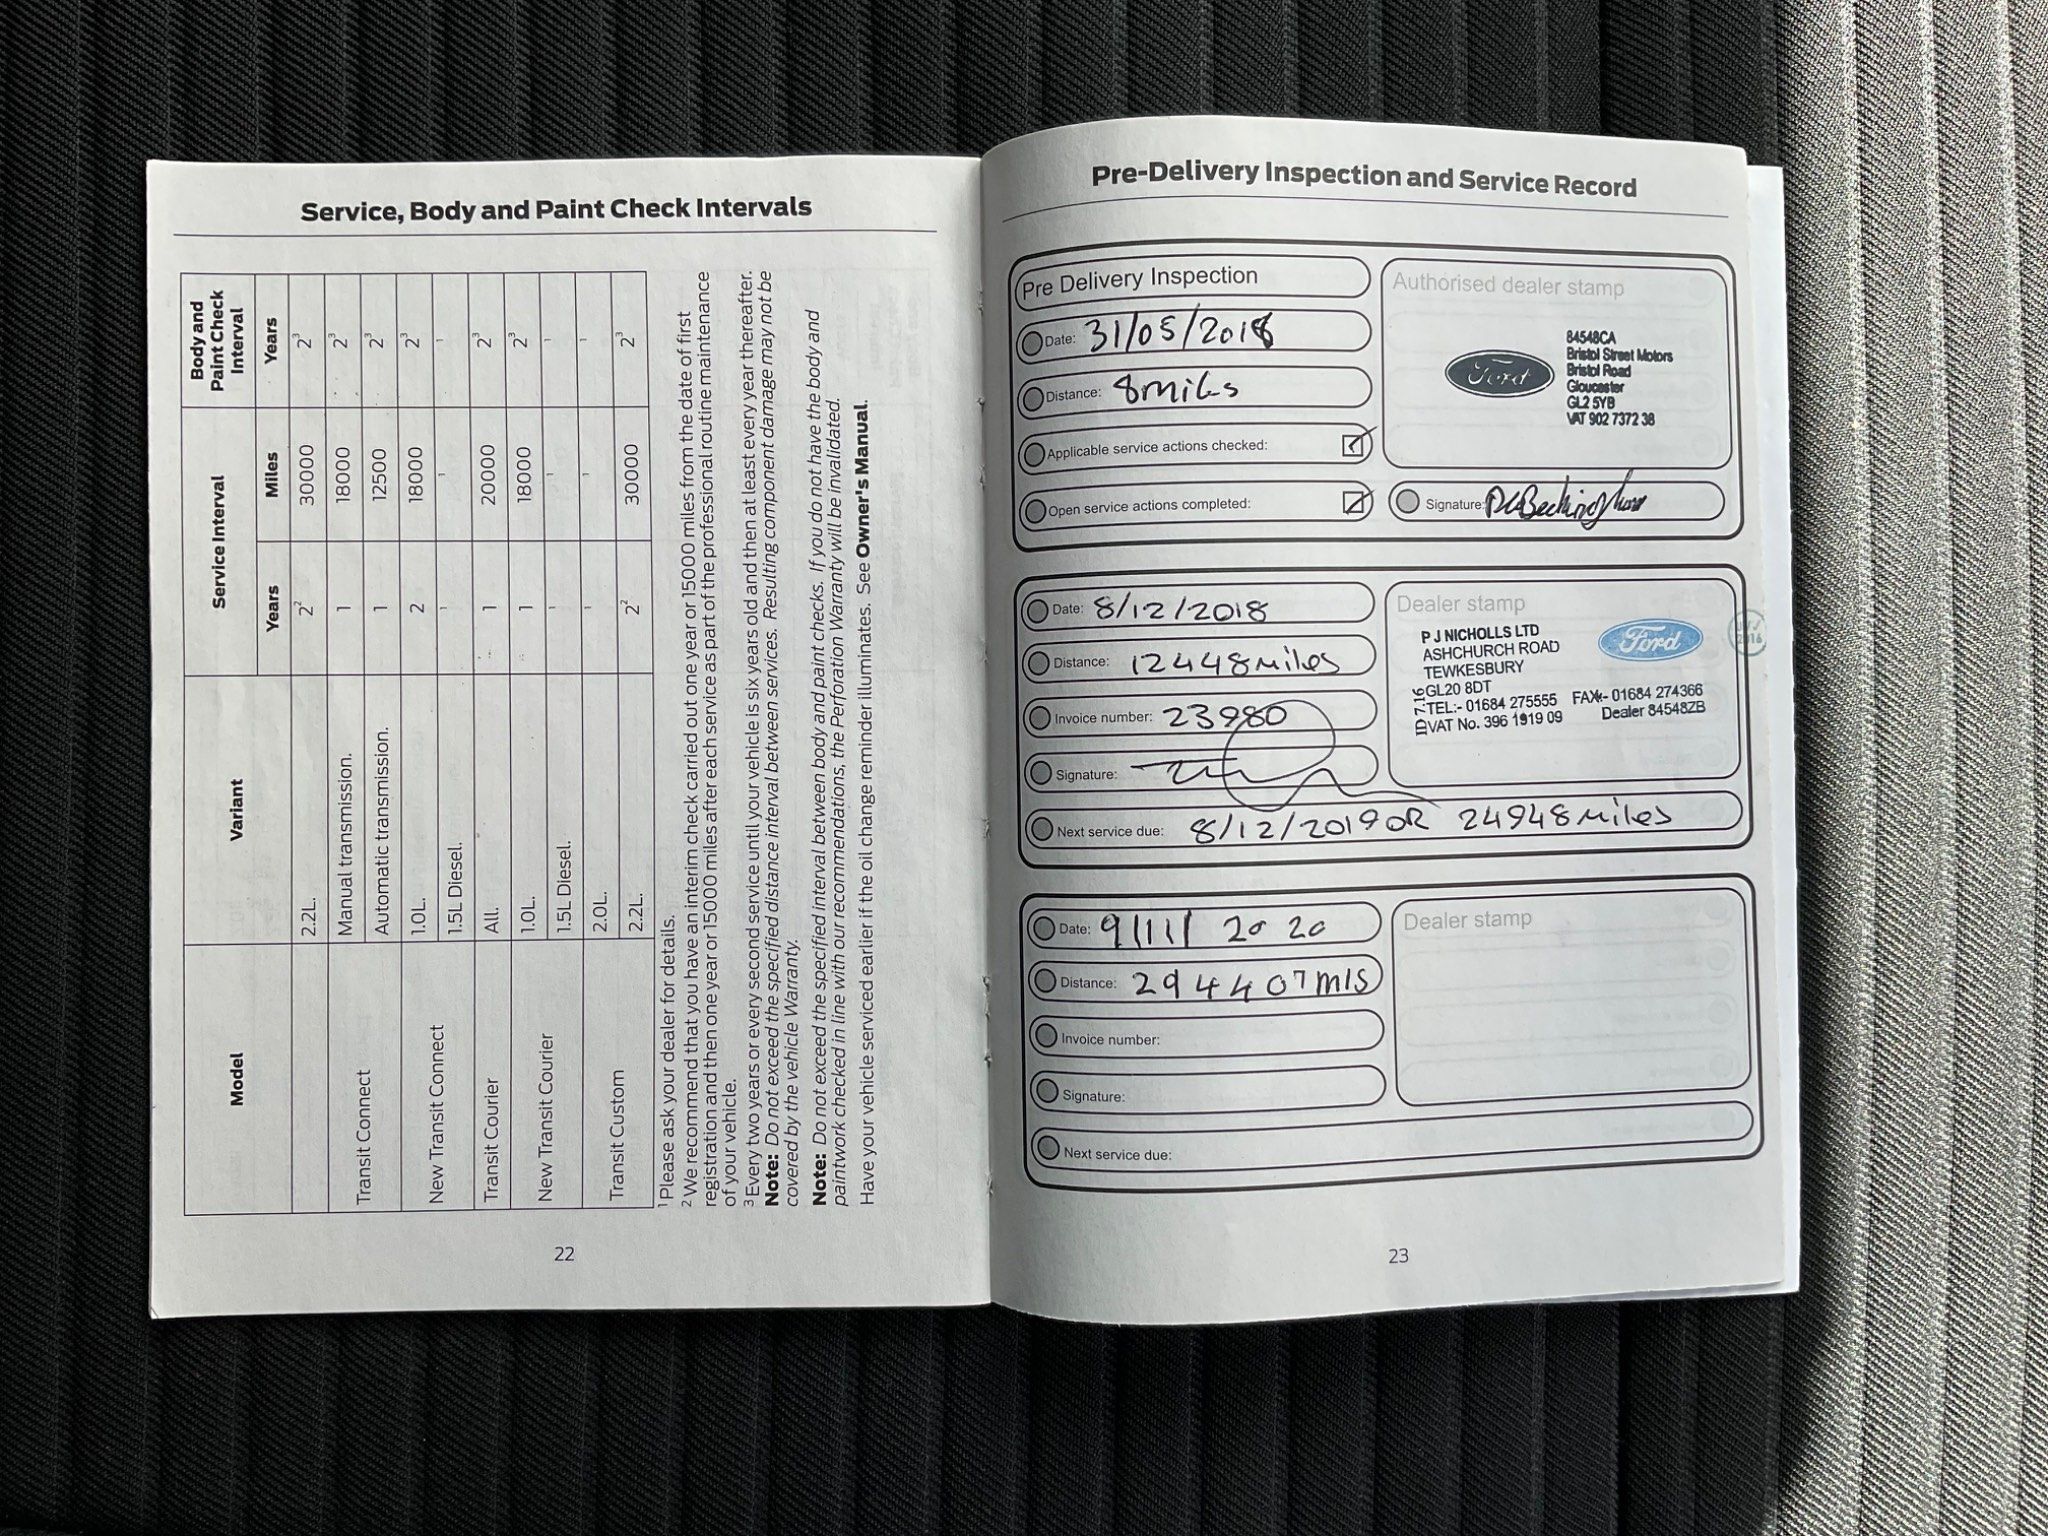 Service, Body and Paint Check Intervals
Model Variant Service Interval Body and Paint Check Interval
Years Miles Years
2.2L. 2² 30000 2³
Transit Connect Manual transmission. 1 18000 2³
Automatic transmission. 1 12500 2³
New Transit Connect 1.0L. 2 18000 2³
1.5L Diesel. ¹ ¹ ¹
Transit Courier All. 1 20000 2³
New Transit Courier 1.0L. 1 18000 2³
1.5L Diesel. ¹ ¹ ¹
Transit Custom 2.0L. ¹ ¹ ¹
2.2L. 2² 30000 2³
¹ Please ask your dealer for details.
² We recommend that you have an interim check carried out one year or 15000 miles from the date of first
registration and then one year or 15000 miles after each service as part of the professional routine maintenance
of your vehicle.
³ Every two years or every second service until your vehicle is six years old and then at least every year thereafter.
Note: Do not exceed the specified distance interval between services. Resulting component damage may not be
covered by the vehicle Warranty.
Note: Do not exceed the specified interval between body and paint checks. If you do not have the body and
paintwork checked in line with our recommendations, the Perforation Warranty will be invalidated.
Have your vehicle serviced earlier if the oil change reminder illuminates. See Owner's Manual.
22
Pre-Delivery Inspection and Service Record
Pre Delivery Inspection
Date: 31/05/2018
Distance: 8miles
Applicable service actions checked:
Open service actions completed:
Authorised dealer stamp
Ford
84548CA
Bristol Street Motors
Bristol Road
Gloucester
GL2 5YB
VAT 902 7372 38
Signature:
Date: 8/12/2018
Distance: 12448miles
Invoice number: 23980
Signature:
Next service due: 8/12/2019 OR 24948miles
Dealer stamp
P J NICHOLLS LTD
ASHCHURCH ROAD
TEWKESBURY
GL20 8DT
TEL:- 01684 275555 FAX:- 01684 274366
VAT No. 396 1919 09 Dealer 84548ZB
Ford
2016
Date: 9/11/2020
Distance: 294407mls
Invoice number:
Signature:
Next service due:
Dealer stamp
23